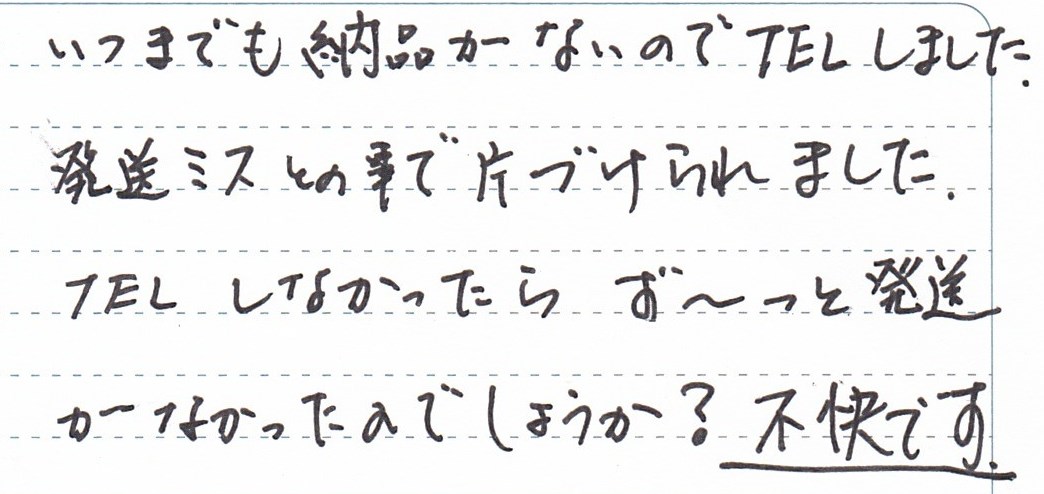 いつまでも納品がないのでTELしました.
発送ミスとの事で片づけられました.
TELしなかったら ず〜っと発送
がなかったのでしょうか？不快です.